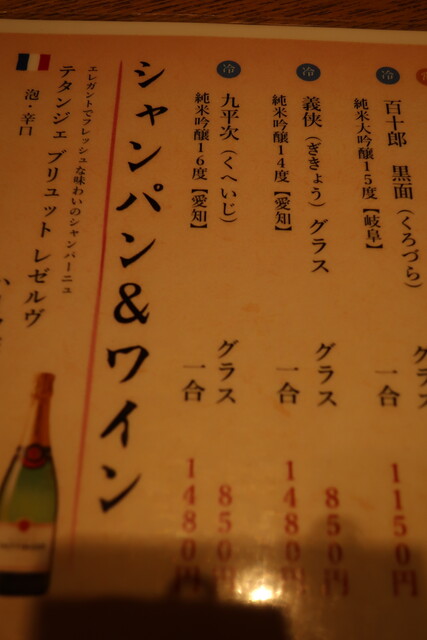 冷
百十郎 黒面(くろづら)
純米大吟醸15度【岐阜】
グラス
一合
1150円
冷
義侠(ぎきょう)グラス
純米吟醸14度【愛知】
グラス
850円
一合
1480円
冷
九平次(くへいじ)
純米吟醸16度【愛知】
グラス
850円
一合
1480円
シャンパン&ワイン
エレガントでフレッシュな味わいのシャンパーニュ
テタンジェ ブリュット レゼルヴ
泡・辛口